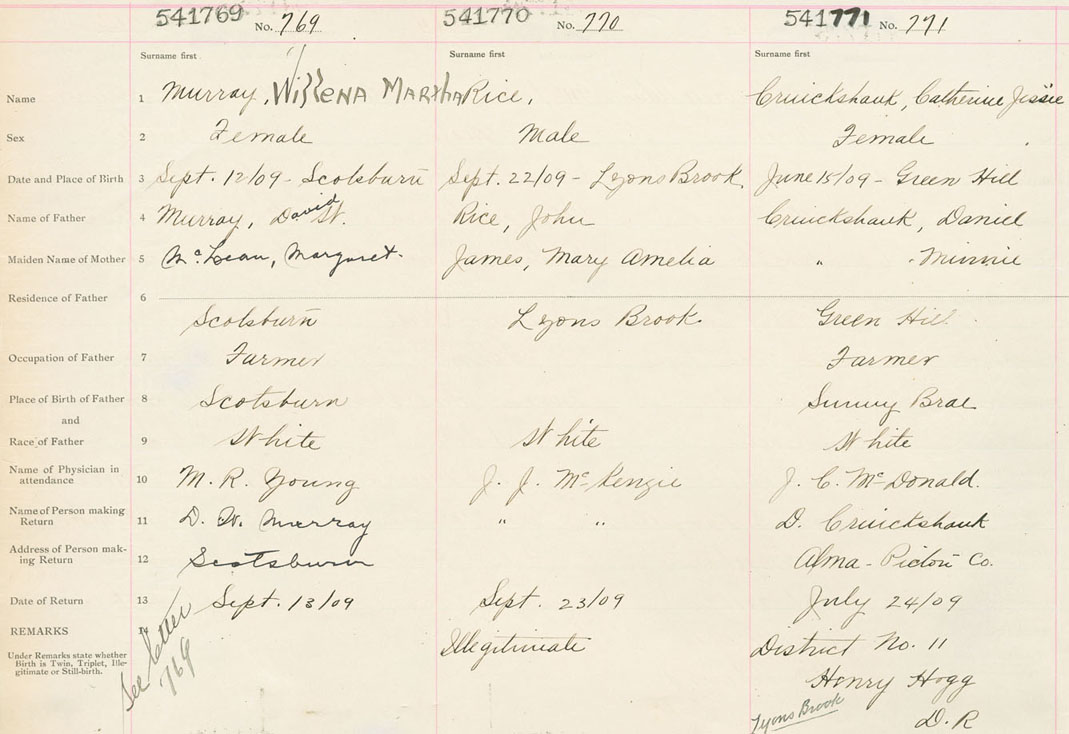 541769 No. 769 541770 No. 770 541771 No. 771
Surname first Surname first Surname first
Name 1 Murray, Willena Martha Rice, Cruickshank, Catherine Jessie
Sex 2 Female Male Female
Date and Place of Birth 3 Sept. 12/09 - Scotsburn Sept. 22/09 - Lyons Brook. June 15/09 - Green Hill
Name of Father 4 Murray, David W. Rice, John Cruickshank, Daniel
Maiden Name of Mother 5 McLean, Margaret. James, Mary Amelia " Minnie
Residence of Father 6
Scotsburn Lyons Brook. Green Hill
Occupation of Father 7 Farmer Farmer
Place of Birth of Father 8 Scotsburn Sunny Brae
and
Race of Father 9 White White White
Name of Physician in
attendance 10 M. R. Young J. J. McKenzie J. C. McDonald.
Name of Person making
Return 11 D. W. Murray " " D. Cruickshank
Address of Person mak-
ing Return 12 Scotsburn Alma - Pictou Co.
Date of Return 13 Sept. 13/09 Sept. 23/09 July 24/09
REMARKS 14 Illegitimate District No. 11
Under Remarks state whether
Birth is Twin, Triplet, Ille-
gitimate or Still-birth.
See letter
769
Henry Hogg
Lyons Brook D. R